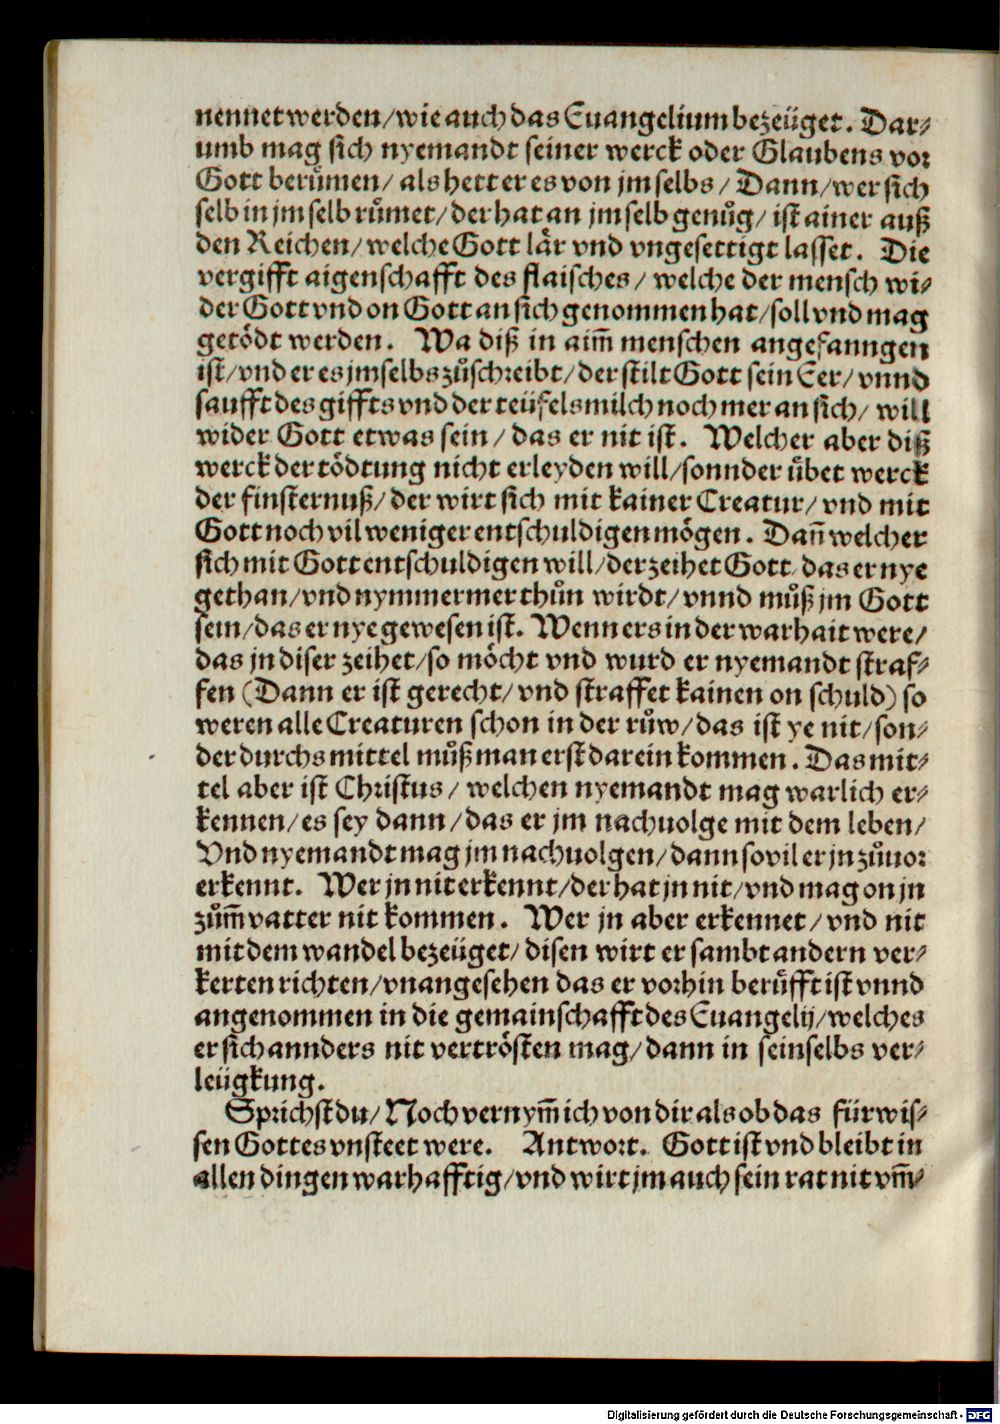 nennet werden/wie auch das Euangelium bezeüget. Dar⸗
umb mag sich nyemandt seiner werck oder Glaubens vor
Gott berůmen/ als hett er es von jm selbs/ Dann/wer sich
selb in jm selb růmet/der hat an jm selb genůg/ ist ainer auß
den Reichen/welche Gott lår vnd vngesettigt lasset. Die
vergifft aigenschafft des flaisches/ welche der mensch wi⸗
der Gott vnd on Gott an sich genommen hat/soll vnd mag
getödt werden. Wa diß in aim̄ menschen angefanngen
ist/vnd er es jm selbs zůschreibt/der stilt Gott sein Eer/vnnd
saufft des giffts vnd der teüfels milch noch mer an sich/ will
wider Gott etwas sein/ das er nit ist. Welcher aber diß
werck der tödtung nicht erleyden will/sonnder übet werck
der finsternuß/der wirt sich mit kainer Creatur/vnd mit
Gott noch vil weniger entschuldigen mögen. Dan̄ welcher
sich mit Gott entschuldigen will/der zeihet Gott das er nye
gethan/vnd nymmermer thůn wirdt/vnnd můß jm Gott
sein/das er nye gewesen ist. Wenn ers in der warhait were/
das jn diser zeihet/so möcht vnd wurd er nyemandt straf⸗
fen (Dann er ist gerecht/vnd straffet kainen on schuld) so
weren alle Creaturen schon in der růw/das ist ye nit/son⸗
der durchs mittel můß man erst darein kommen. Das mit⸗
tel aber ist Christus/ welchen nyemandt mag warlich er⸗
kennen/es sey dann/das er jm nachuolge mit dem leben/
Vnd nyemandt mag jm nachuolgen/dann souil er jn zůuor
erkennt. Wer jn nit erkennt/der hat jn nit/vnd mag on jn
zům̄ vatter nit kommen. Wer jn aber erkennet/vnd nit
mit dem wandel bezeüget/disen wirt er sambt andern ver⸗
kerten richten/vnangesehen das er vorhin berüfft ist vnnd
angenommen in die gemainschafft des Euangelij/welches
er sich annders nit vertrösten mag/dann in seinselbs ver⸗
leügkung.
Sprichst du/Noch vernym̄ ich von dir als ob das fürwis⸗
sen Gottes vnsteet were. Antwort. Gott ist vnd bleibt in
allen dingen warhafftig/vnd wirt jm auch sein rat nit vm̄⸗
Digitalisierung gefördert durch die Deutsche Forschungsgemeinschaft - DFG